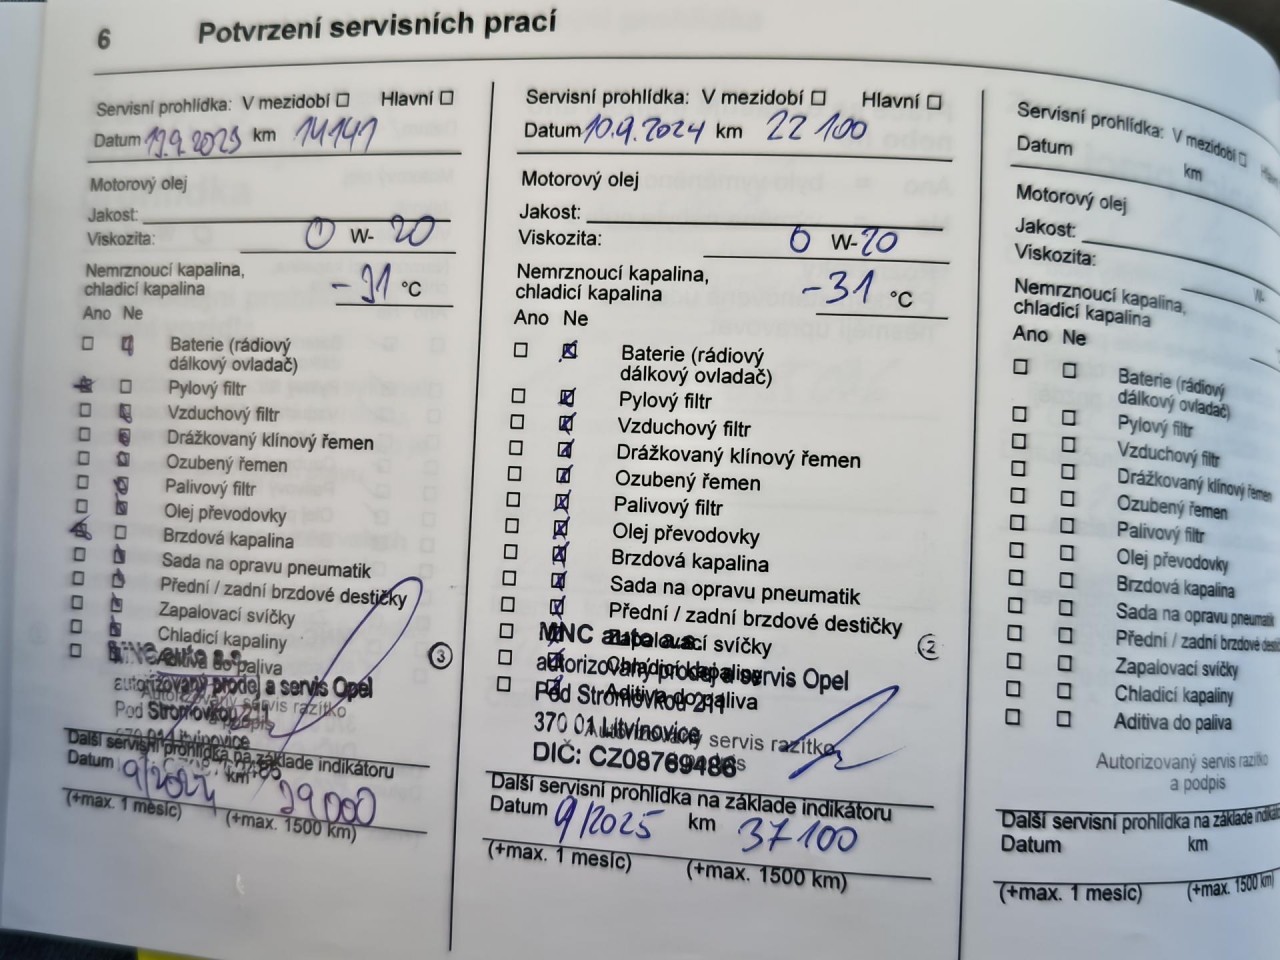 6 Potvrzení servisních prací
Servisní prohlídka: V mezidobí Hlavní
Datum 19.9.2023 km 14141
Motorový olej
Jakost:
Viskozita: 0 W- 20
Nemrznoucí kapalina,
chladicí kapalina -31 °C
Ano Ne
Baterie (rádiový
dálkový ovladač)
Pylový filtr
Vzduchový filtr
Drážkovaný klínový řemen
Ozubený řemen
Palivový filtr
Olej převodovky
Brzdová kapalina
Sada na opravu pneumatik
Přední / zadní brzdové destičky
Zapalovací svíčky
Chladicí kapaliny
Aditiva do paliva
MNC auto a.s.
autorizovaný prodej a servis Opel
Pod Stromovkou 211
Autorizovaný servis razítko
a podpis
Litvínovice
3
Další servisní prohlídka na základe indikátoru
Datum 9/2024 km 29000
(+max. 1 měsíc) (+max. 1500 km)
Servisní prohlídka: V mezidobí Hlavní
Datum 10.9.2024 km 22 100
Motorový olej
Jakost:
Viskozita: 0 W-20
Nemrznoucí kapalina,
chladicí kapalina -31 °C
Ano Ne
Baterie (rádiový
dálkový ovladač)
Pylový filtr
Vzduchový filtr
Drážkovaný klínový řemen
Ozubený řemen
Palivový filtr
Olej převodovky
Brzdová kapalina
Sada na opravu pneumatik
Přední / zadní brzdové destičky
Zapalovací svíčky
Chladicí kapaliny
Aditiva do paliva
MNC auto a.s.
autorizovaný prodej a servis Opel
Pod Stromovkou 211
370 01 Litvínovice
Autorizovaný servis razítko
a podpis
DIČ: CZ08769486
2
Další servisní prohlídka na základe indikátoru
Datum 9/2025 km 37 100
(+max. 1 měsíc) (+max. 1500 km)
Servisní prohlídka: V mezidobí
Datum km
Motorový olej
Jakost:
Viskozita: W-
Nemrznoucí kapalina,
chladicí kapalina
Ano Ne
Baterie (rádiový
dálkový ovladač)
Pylový filtr
Vzduchový filtr
Drážkovaný klínový řemen
Ozubený řemen
Palivový filtr
Olej převodovky
Brzdová kapalina
Sada na opravu pneumatik
Přední / zadní brzdové
Zapalovací svíčky
Chladicí kapaliny
Aditiva do paliva
Autorizovaný servis razítko
a podpis
Další servisní prohlídka na základe
Datum km
(+max. 1 měsíc) (+max. 1500 km)